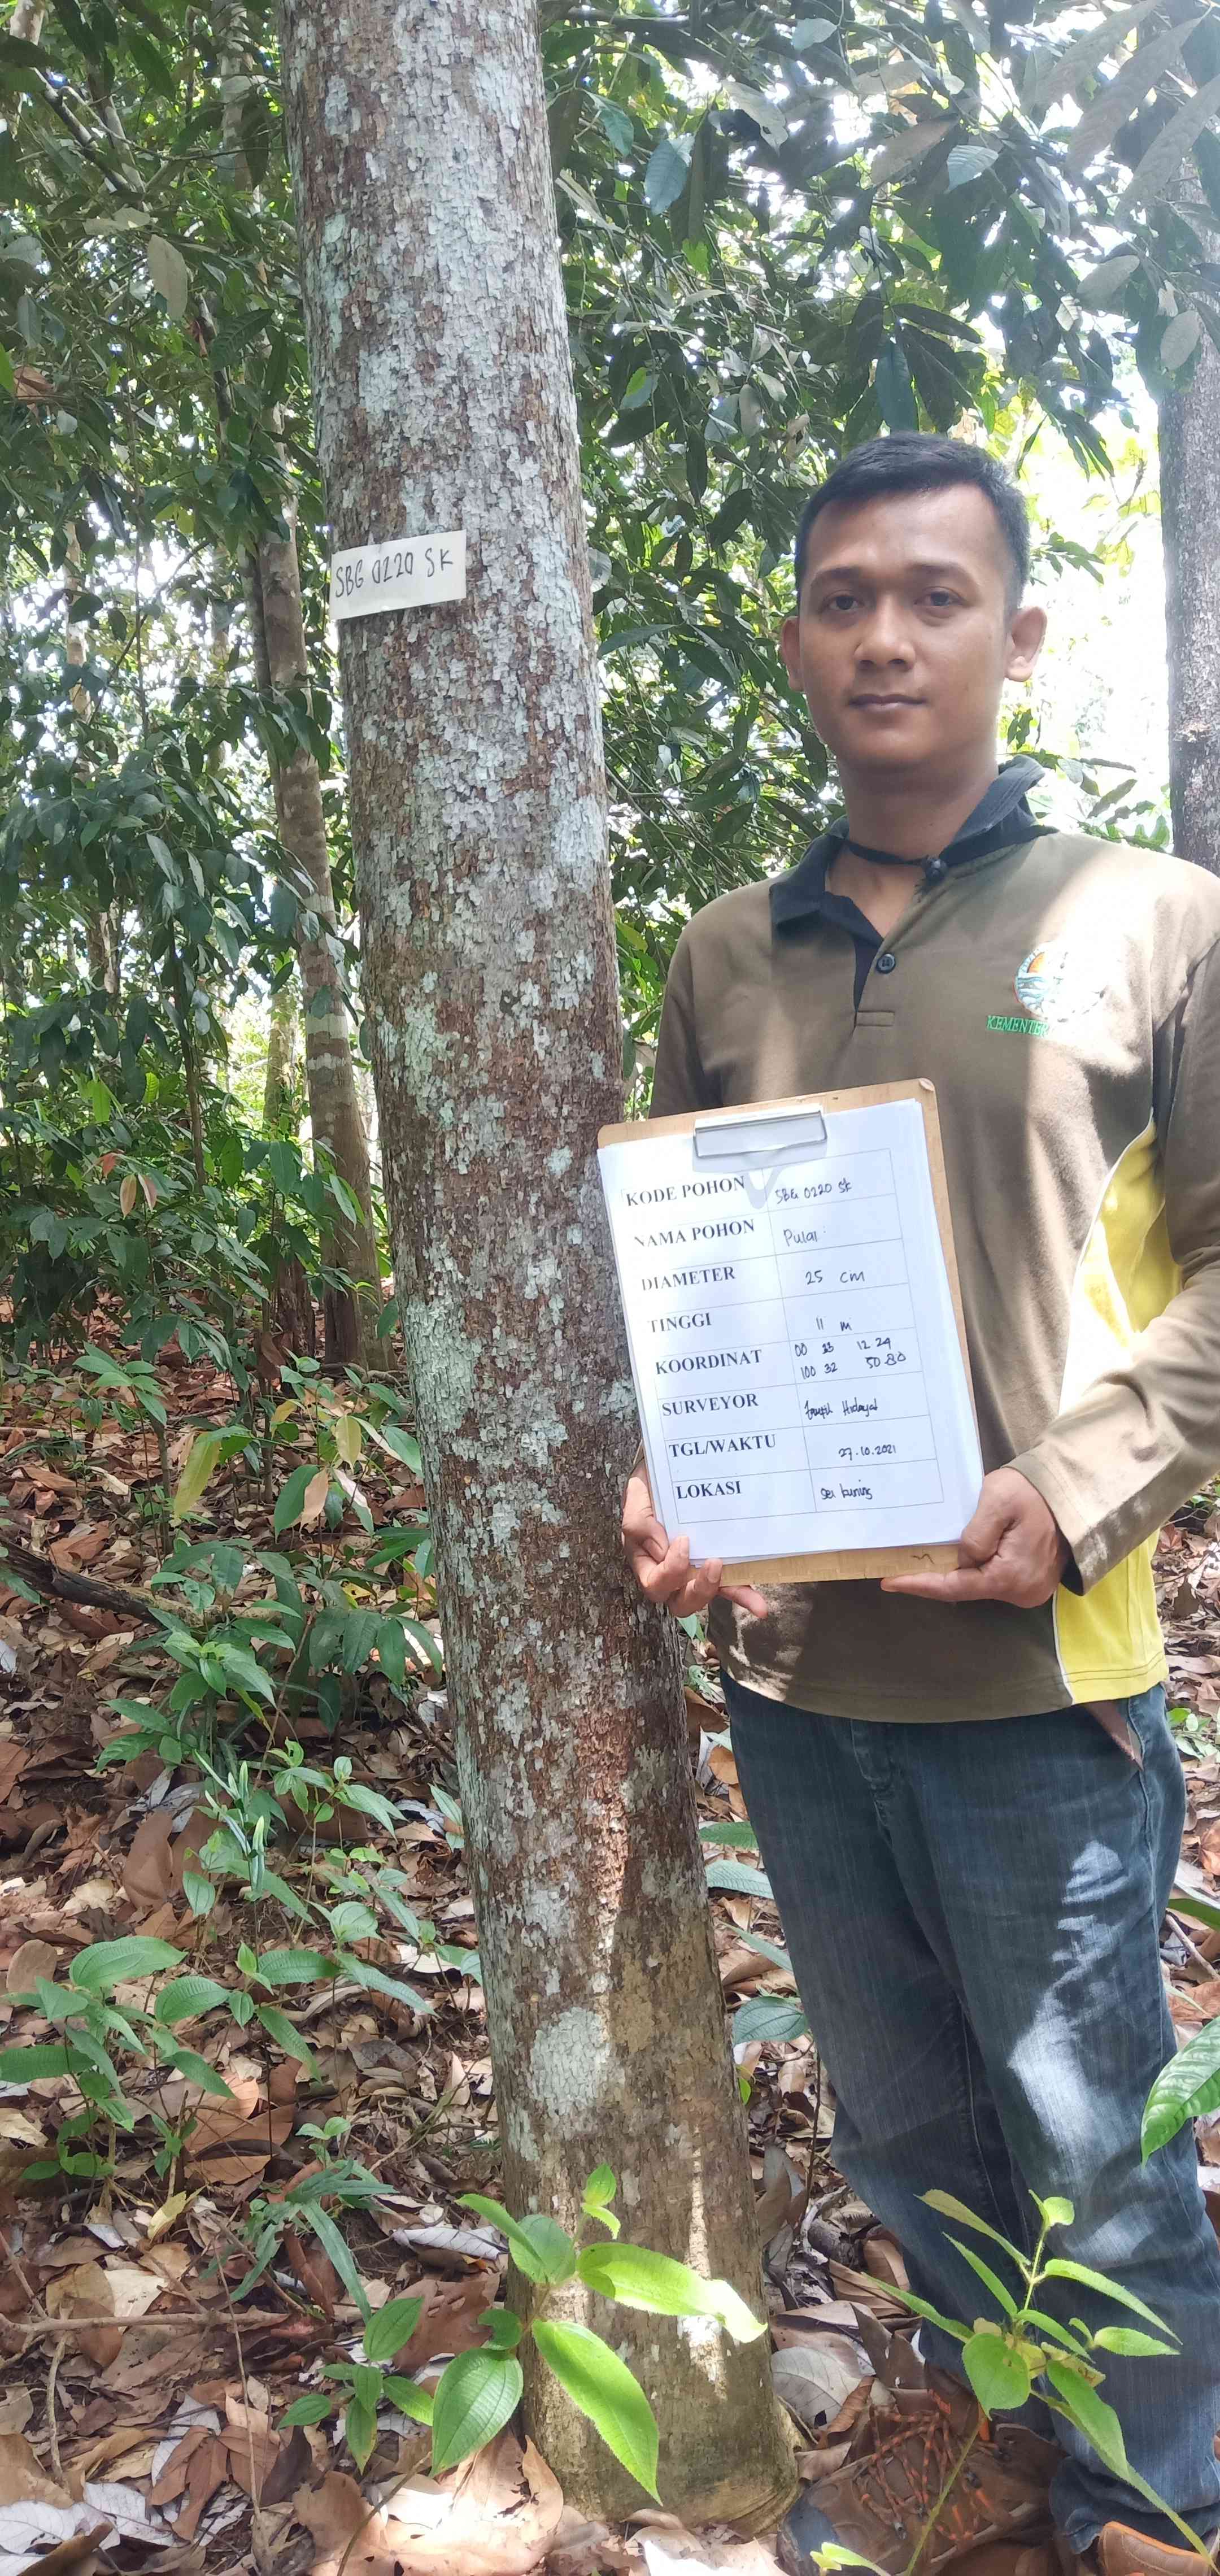 SBG 0220 SK
KEMENTER
KODE POHON SBG 0220 SK
NAMA POHON Pulai
DIAMETER 25 cm
TINGGI 11 m
KOORDINAT 00 23 12 24
100 32 50 80
SURVEYOR Hidayat
TGL/WAKTU 27.10.2021
LOKASI Sei kuning